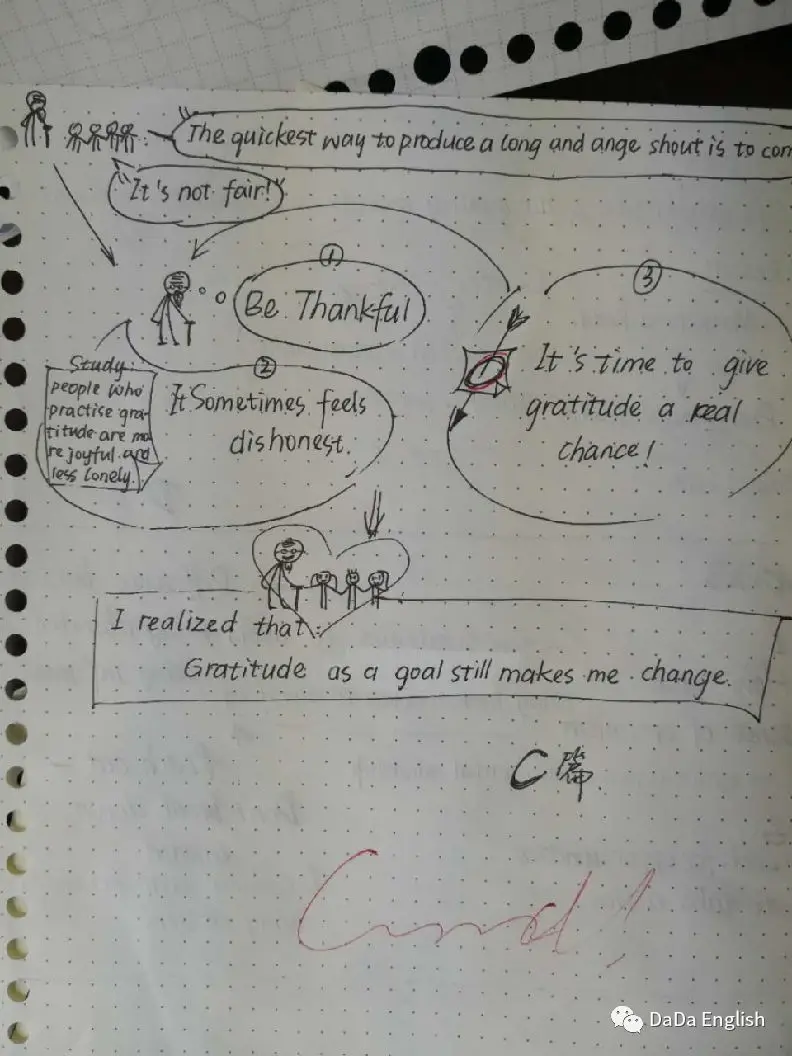 "The quickest way to produce a long and ange shout is to com
"It's not fair!"
①
Be Thankful
③
It's time to give
gratitude a real
chance!
②
It Sometimes feels
dishonest.
Study:
people who
practise gra-
titude are mo
re joyful and
less lonely.
I realized that:
Gratitude as a goal still makes me change.
C篇
Good!
DaDa English